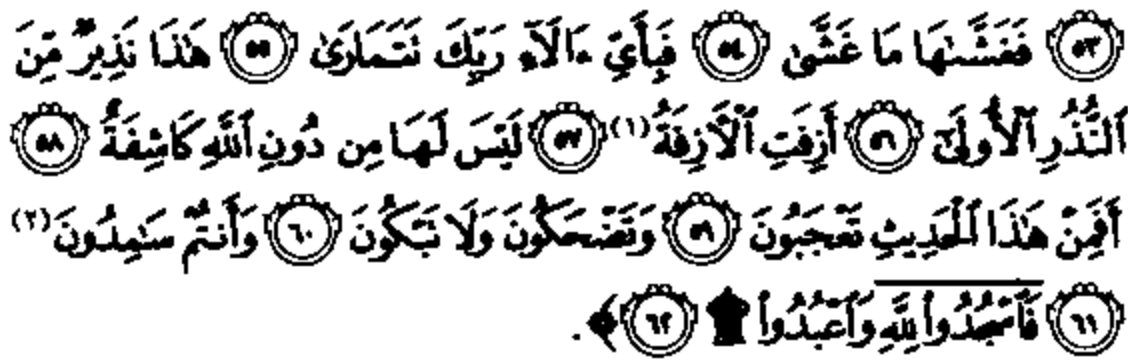 ﴿٥٣﴾ فَغَشَّىٰهَا مَا غَشَّىٰ ﴿٥٤﴾ فَبِأَيِّ ءَالَآءِ رَبِّكَ تَتَمَارَىٰ ﴿٥٥﴾ هَٰذَا نَذِيرٌ مِّنَ
ٱلنُّذُرِ ٱلْأُولَىٰٓ ﴿٥٦﴾ أَزِفَتِ ٱلْءَازِفَةُ (١) ﴿٥٧﴾ لَيْسَ لَهَا مِن دُونِ ٱللَّهِ كَاشِفَةٌ ﴿٥٨﴾
أَفَمِنْ هَٰذَا ٱلْحَدِيثِ تَعْجَبُونَ ﴿٥٩﴾ وَتَضْحَكُونَ وَلَا تَبْكُونَ ﴿٦٠﴾ وَأَنتُمْ سَٰمِدُونَ (٢)
﴿٦١﴾ فَٱسْجُدُوا۟ لِلَّهِ وَٱعْبُدُوا۟ ۩ ﴿٦٢﴾ ﴾.